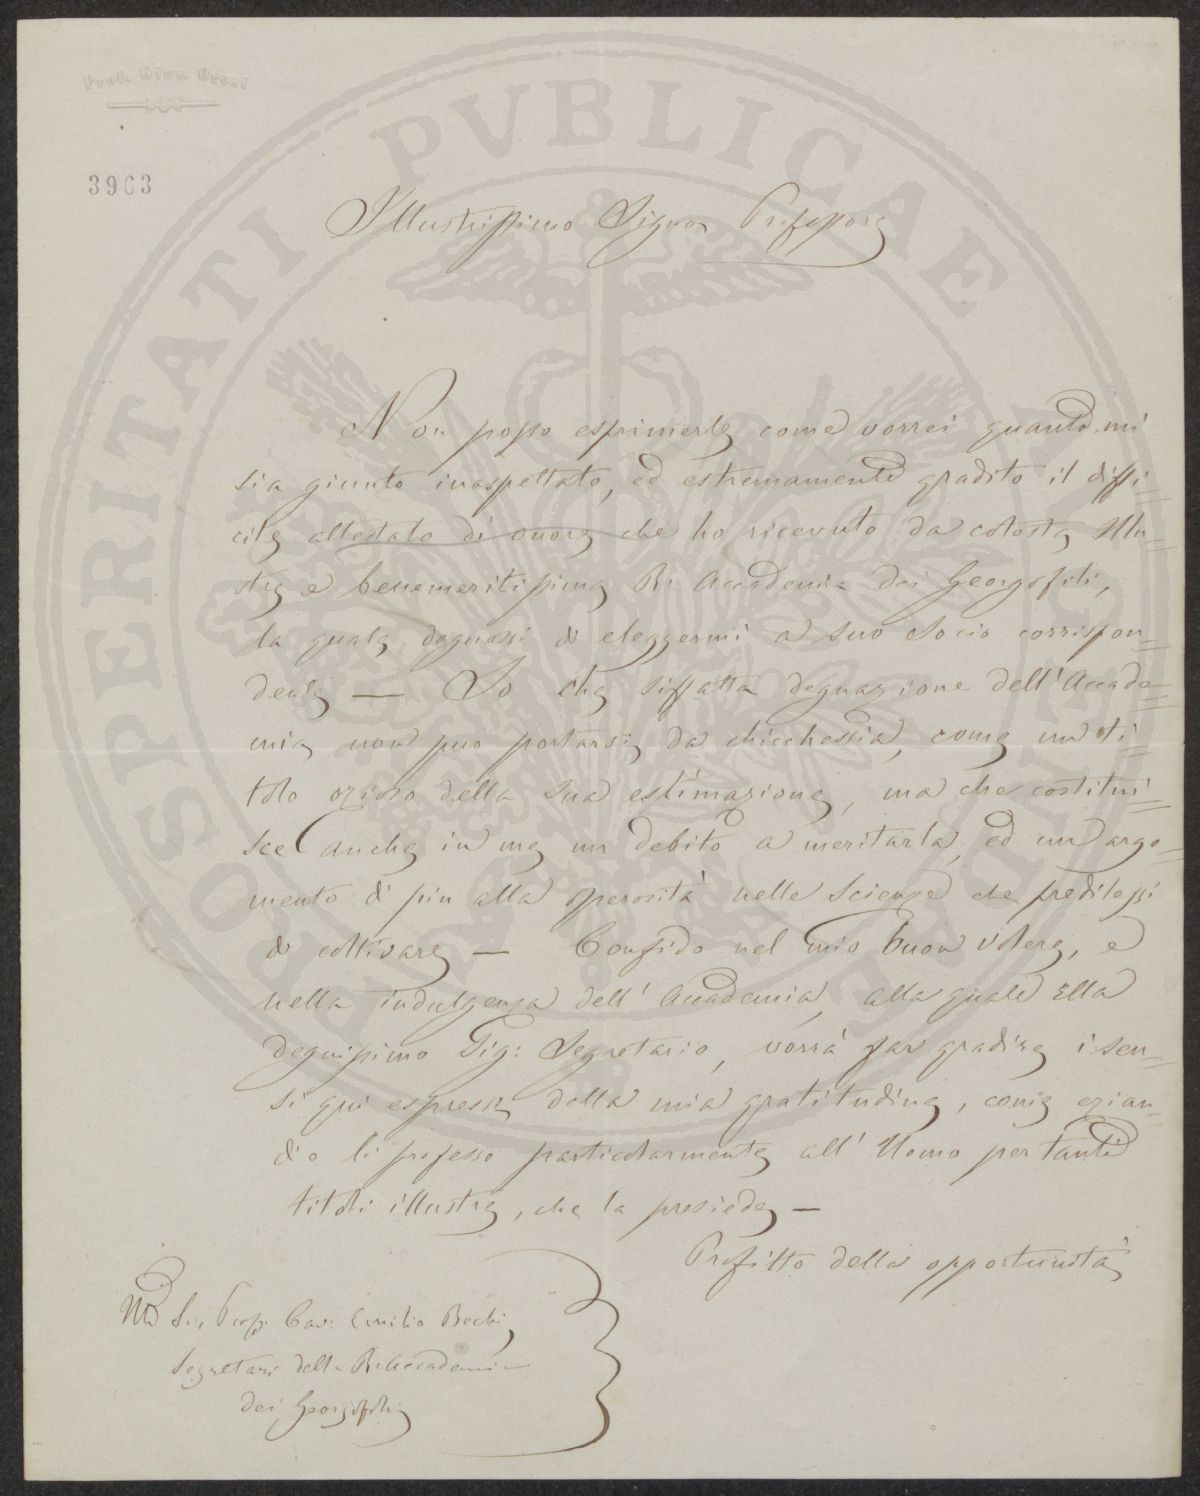 Prof. Gius. Orosi
3963
PROSPERITATI PVBLICAE AVGENDAE
Illustrissimo Signor Professore
Non posso esprimerle come vorrei quanto mi
sia giunto inaspettato, ed estremamente gradito il diffi-
cile attestato di onore che ho ricevuto da cotesta Illu-
stre e benemeritissima R. Accademia dei Georgofili,
la quale degnossi di eleggermi a suo Socio corrispon-
dente — So che siffatta degnazione dell'Accade-
mia non puo portarsi da chicchessia, come un ti-
tolo ozioso della sua estimazione, ma che costitui-
sce anche in me un debito a meritarla, ed un argo-
mento di piu alla operosità nelle Scienze che predilessi
di coltivare — Confido nel mio buon volere, e
nella indulgenza dell'Accademia, alla quale Ella
degnissimo Sig: Segretario, vorrà far gradire i sen-
si qui espressi della mia gratitudine, come ezian-
dio li professo particolarmente all'Uomo per tanti
titoli illustre, che la presiede —
Profitto della opportunità
Sig. Prof. Cav: Emilio Bechi
Segretario della R. Accademia
dei Georgofili